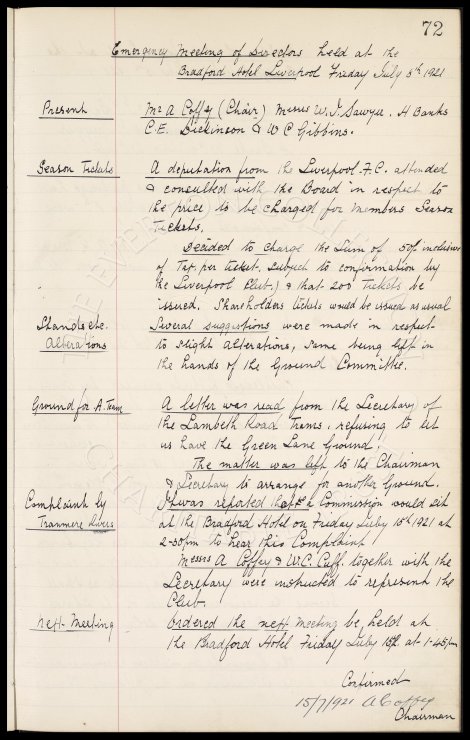 72
Emergency Meeting of Directors held at the
Bradford Hotel Liverpool Friday July 8th 1921
Present
Mr A Coffey (Chair) Messrs W.J. Sawyer. H Banks
C.E. Dickinson & W C Gibbins.
Season Tickets
A deputation from the Liverpool F.C. attended
& consulted with the Board in respect to
the price to be charged for members Season
Tickets.
Decided to charge the sum of 50/- inclusive
of Tax per ticket. subject to confirmation by
the Liverpool Club.) & that 200 Tickets be
issued. Shareholders tickets would be issued as usual
Stands etc.
Alterations
Several suggestions were made in respect
to slight alterations, same being left in
the hands of the Ground Committee.
Ground for A. Team
A letter was read from the Secretary of
the Lambeth Road Trams. refusing to let
us have the Green Lane Ground.
The matter was left to the Chairman
& Secretary to arrange for another Ground.
Complaint by
Tranmere Rovers
It was reported that a Commission would sit
at the Bradford Hotel on Friday July 15th 1921 at
2-30pm to hear this Complaint
Messrs A Coffey & W.C. Cuff. together with the
Secretary were instructed to represent the
Club.
Next Meeting
Ordered the next meeting be held at
the Bradford Hotel Friday July 15th. at 1-45pm
Confirmed
15/7/1921 A Coffey
Chairman